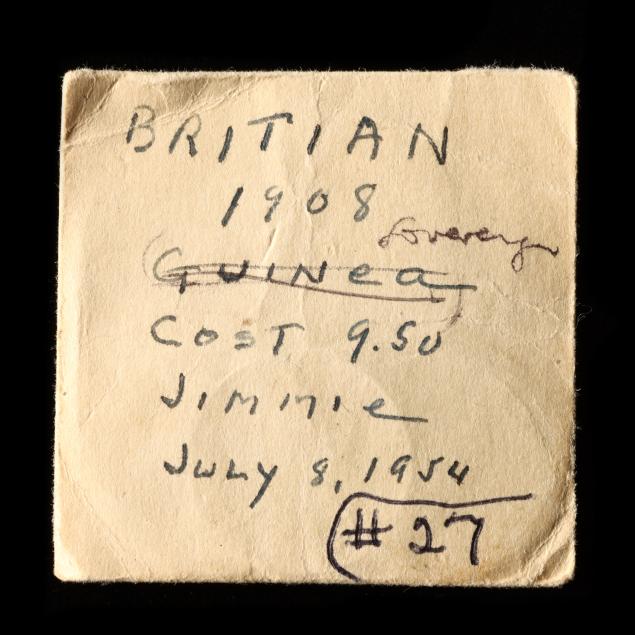 BRITIAN
1908
Sovereign
Guinea
COST 9.50
JIMMIE
JULY 8, 1954
#27